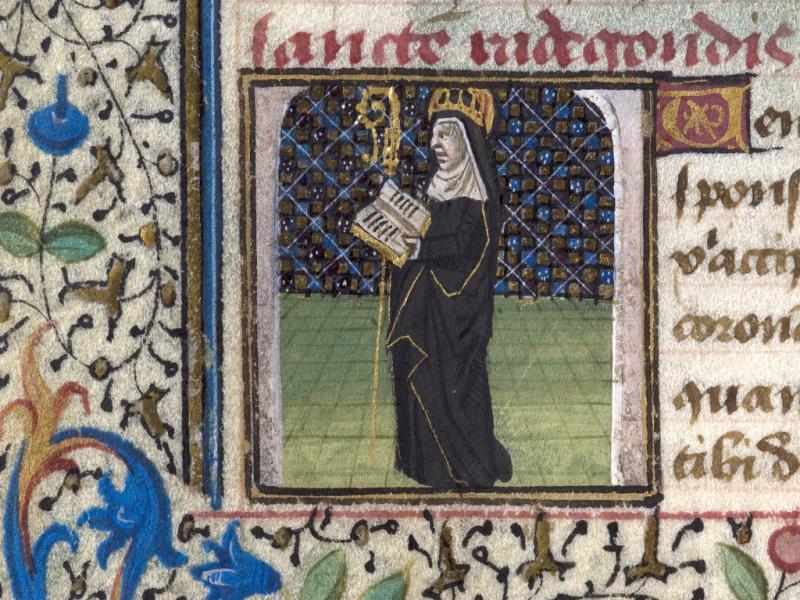 sancte radegondis
Ven
spons
accip
coron
quam
tibi d